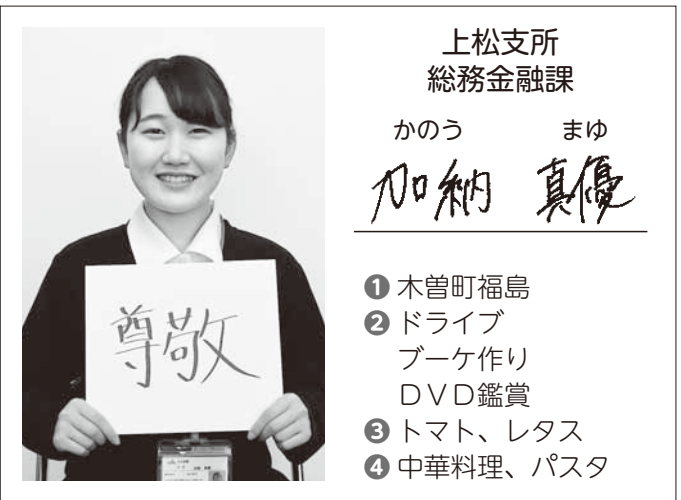 上松支所
総務金融課
かのう まゆ
加納 真優
尊敬
❶ 木曽町福島
❷ ドライブ
ブーケ作り
ＤＶＤ鑑賞
❸ トマト、レタス
❹ 中華料理、パスタ